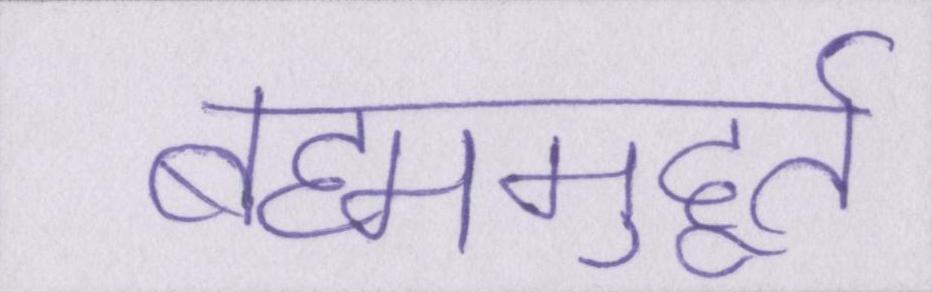 बह्ममुहूर्त